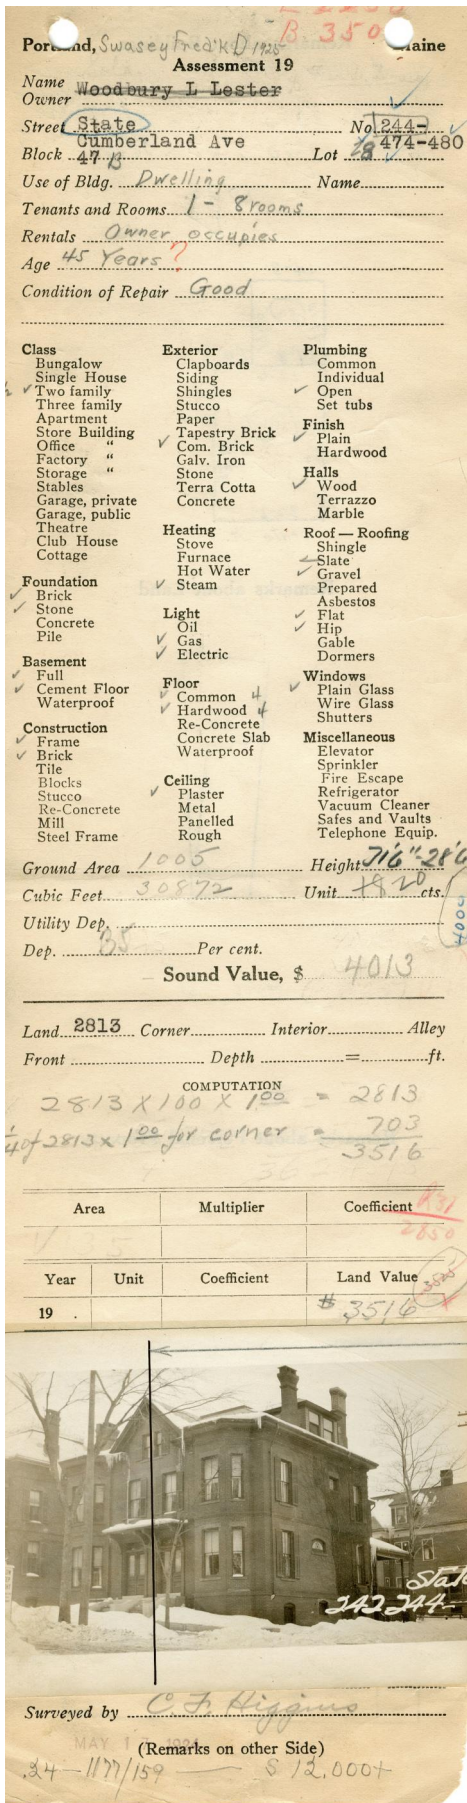 B 350
Portland, Swasey Fred'k D 1925 Maine
Assessment 19
Name
Owner Woodbury L Lester
Street State No. 244-
Cumberland Ave 474-480
Block 47 B Lot 28
Use of Bldg. Dwelling Name
Tenants and Rooms 1 - 8 rooms
Rentals Owner occupies
Age 45 Years ?
Condition of Repair Good
Class
Bungalow
Single House
½ ✓ Two family
Three family
Apartment
Store Building
Office "
Factory "
Storage "
Stables
Garage, private
Garage, public
Theatre
Club House
Cottage
Foundation
✓ Brick
✓ Stone
Concrete
Pile
Basement
✓ Full
✓ Cement Floor
Waterproof
Construction
✓ Frame
✓ Brick
Tile
Blocks
Stucco
Re-Concrete
Mill
Steel Frame
Exterior
Clapboards
Siding
Shingles
Stucco
Paper
Tapestry Brick
✓ Com. Brick
Galv. Iron
Stone
Terra Cotta
Concrete
Heating
Stove
Furnace
Hot Water
✓ Steam
Light
Oil
✓ Gas
✓ Electric
Floor
✓ Common 4
✓ Hardwood 4
Re-Concrete
Concrete Slab
Waterproof
Ceiling
✓ Plaster
Metal
Panelled
Rough
Plumbing
Common
Individual
✓ Open
Set tubs
Finish
✓ Plain
Hardwood
Halls
✓ Wood
Terrazzo
Marble
Roof — Roofing
Shingle
✓ Slate
✓ Gravel
Prepared
Asbestos
✓ Flat
✓ Hip
Gable
Dormers
Windows
✓ Plain Glass
Wire Glass
Shutters
Miscellaneous
Elevator
Sprinkler
Fire Escape
Refrigerator
Vacuum Cleaner
Safes and Vaults
Telephone Equip.
Ground Area 1005 Height 28'6
Cubic Feet 30872 Unit 20 cts.
4000
Utility Dep.
Dep. 35 Per cent.
Sound Value, $ 4013
Land 2813 Corner Interior Alley
Front Depth = ft.
COMPUTATION
2813 X 100 X 1.00 = 2813
¼ of 2813 x 1.00 for corner = 703
3516
Area Multiplier Coefficient
2850
Year Unit Coefficient Land Value
3525
19 . $ 3516
State
242 244-
Surveyed by C. F. Higgins
MAY 1
(Remarks on other Side)
24 - 1177/159 — $ 12,000+